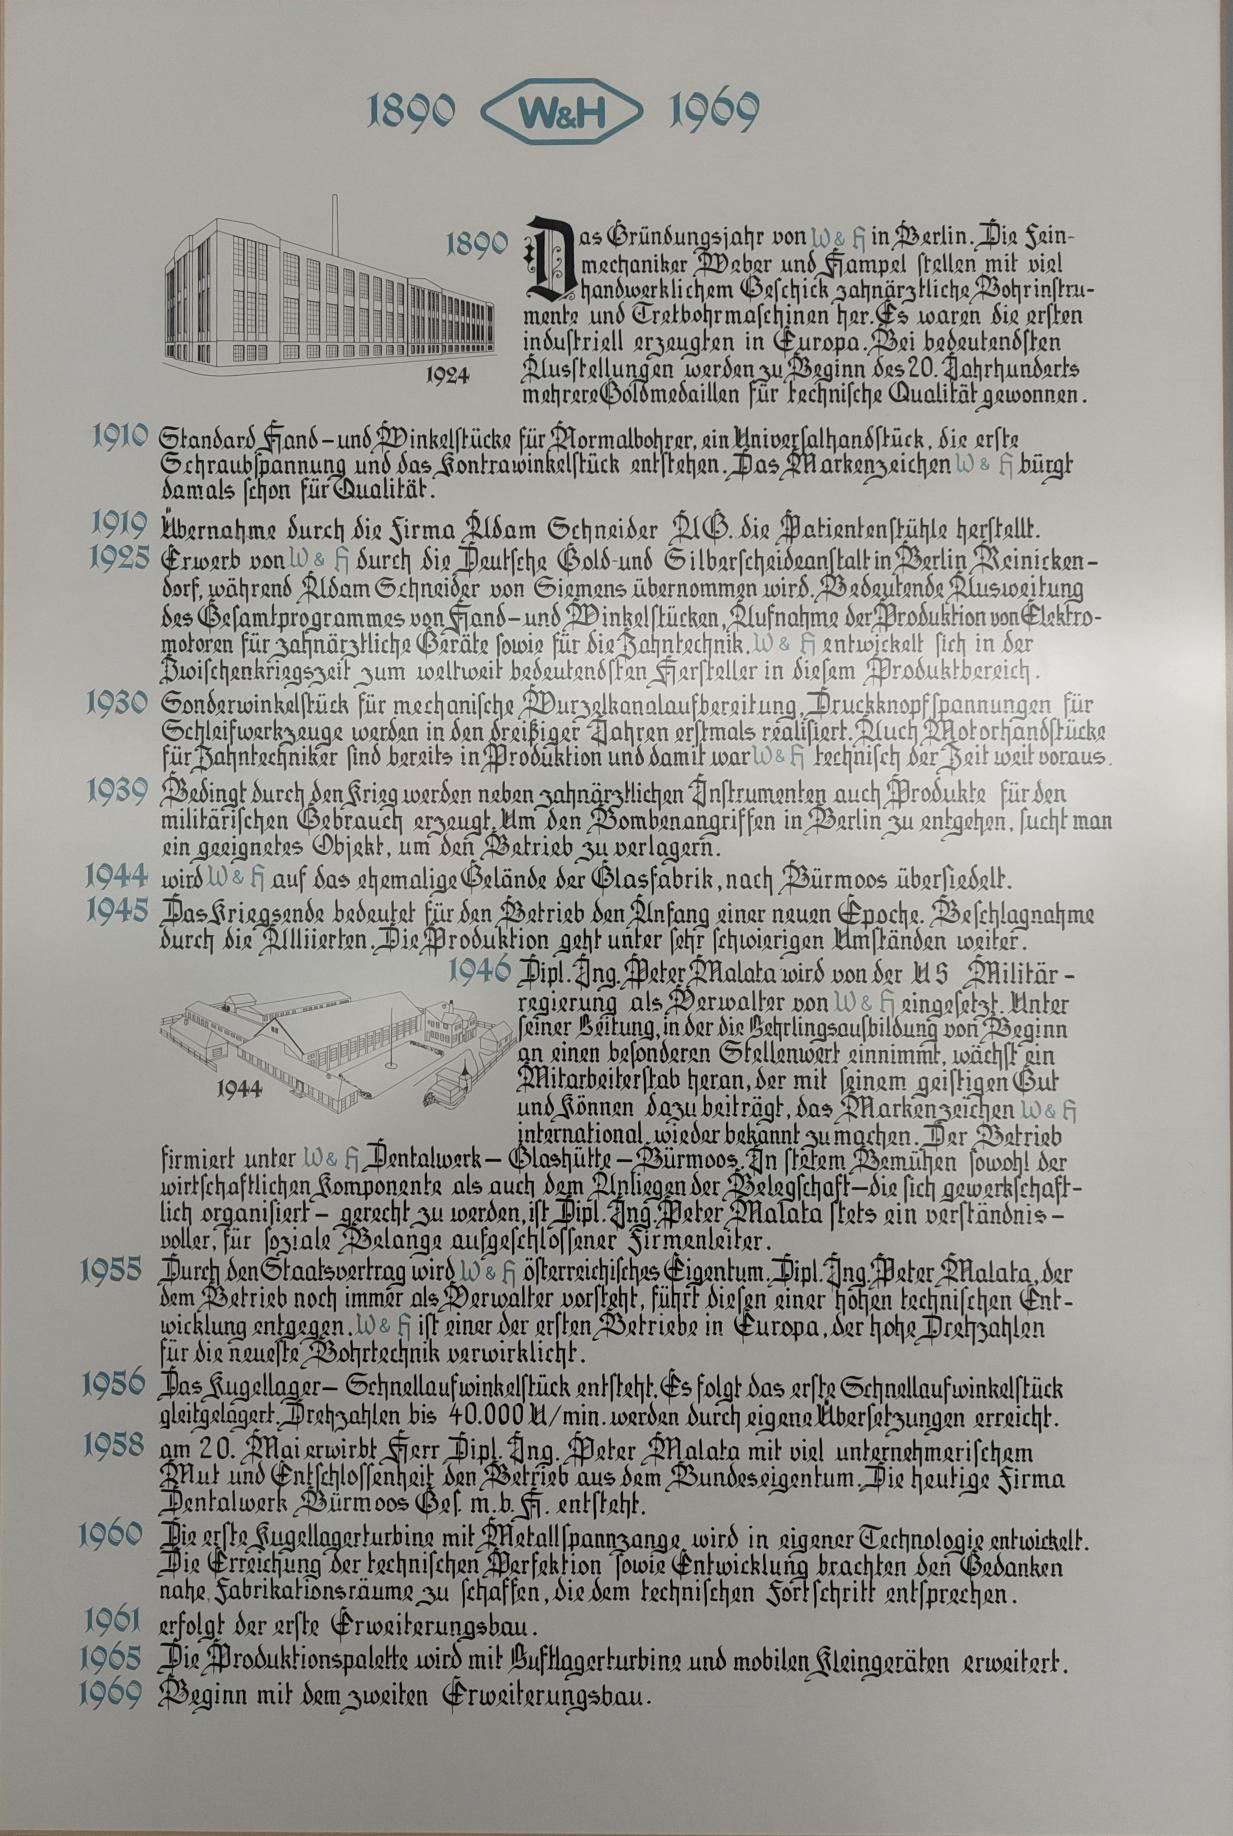 1890 W&H 1969
1890 Das Gründungsjahr von W & H in Berlin. Die Fein-
mechaniker Weber und Hampel stellen mit viel
handwerklichem Geschick zahnärztliche Bohrinstru-
mente und Tretbohrmaschinen her. Es waren die ersten
industriell erzeugten in Europa. Bei bedeutendsten
Ausstellungen werden zu Beginn des 20. Jahrhunderts
mehrere Goldmedaillen für technische Qualität gewonnen.
1924
1910 Standard Hand- und Winkelstücke für Normalbohrer, ein Universalhandstück, die erste
Schraubspannung und das Kontrawinkelstück entstehen. Das Markenzeichen W & H bürgt
damals schon für Qualität.
1919 Übernahme durch die Firma Adam Schneider AG. die Patientenstühle herstellt.
1925 Erwerb von W & H durch die Deutsche Gold-und Silberscheideanstalt in Berlin Reinicken-
dorf, während Adam Schneider von Siemens übernommen wird. Bedeutende Ausweitung
des Gesamtprogrammes von Hand- und Winkelstücken, Aufnahme der Produktion von Elektro-
motoren für zahnärztliche Geräte sowie für die Zahntechnik. W & H entwickelt sich in der
Zwischenkriegszeit zum weltweit bedeutendsten Hersteller in diesem Produktbereich.
1930 Sonderwinkelstück für mechanische Wurzelkanalaufbereitung, Druckknopfspannungen für
Schleifwerkzeuge werden in den dreißiger Jahren erstmals realisiert. Auch Motorhandstücke
für Zahntechniker sind bereits in Produktion und damit war W & H technisch der Zeit weit voraus.
1939 Bedingt durch den Krieg werden neben zahnärztlichen Instrumenten auch Produkte für den
militärischen Gebrauch erzeugt. Um den Bombenangriffen in Berlin zu entgehen, sucht man
ein geeignetes Objekt, um den Betrieb zu verlagern.
1944 wird W & H auf das ehemalige Gelände der Glasfabrik, nach Bürmoos übersiedelt.
1945 Das Kriegsende bedeutet für den Betrieb den Anfang einer neuen Epoche. Beschlagnahme
durch die Alliierten. Die Produktion geht unter sehr schwierigen Umständen weiter.
1946 Dipl. Ing. Peter Malata wird von der US Militär-
regierung als Verwalter von W & H eingesetzt. Unter
seiner Leitung, in der die Lehrlingsausbildung von Beginn
an einen besonderen Stellenwert einnimmt, wächst ein
Mitarbeiterstab heran, der mit seinem geistigen Gut
und Können dazu beiträgt, das Markenzeichen W & H
international wieder bekannt zu machen. Der Betrieb
1944
firmiert unter W & H Dentalwerk – Glashütte – Bürmoos. In stetem Bemühen sowohl der
wirtschaftlichen Komponente als auch dem Anliegen der Belegschaft – die sich gewerkschaft-
lich organisiert – gerecht zu werden, ist Dipl. Ing. Peter Malata stets ein verständnis-
voller, für soziale Belange aufgeschlossener Firmenleiter.
1955 Durch den Staatsvertrag wird W & H österreichisches Eigentum. Dipl. Ing. Peter Malata, der
dem Betrieb noch immer als Verwalter vorsteht, führt diesen einer hohen technischen Ent-
wicklung entgegen. W & H ist einer der ersten Betriebe in Europa, der hohe Drehzahlen
für die neueste Bohrtechnik verwirklicht.
1956 Das Kugellager– Schnellaufwinkelstück entsteht. Es folgt das erste Schnellaufwinkelstück
gleitgelagert. Drehzahlen bis 40.000 U/min. werden durch eigene Übersetzungen erreicht.
1958 am 20. Mai erwirbt Herr Dipl. Ing. Peter Malata mit viel unternehmerischem
Mut und Entschlossenheit den Betrieb aus dem Bundeseigentum. Die heutige Firma
Dentalwerk Bürmoos Ges. m. b. H. entsteht.
1960 Die erste Kugellagerturbine mit Metallspannzange wird in eigener Technologie entwickelt.
Die Erreichung der technischen Perfektion sowie Entwicklung brachten den Gedanken
nahe, Fabrikationsräume zu schaffen, die dem technischen Fortschritt entsprechen.
1961 erfolgt der erste Erweiterungsbau.
1965 Die Produktionspalette wird mit Luftlagerturbine und mobilen Kleingeräten erweitert.
1969 Beginn mit dem zweiten Erweiterungsbau.